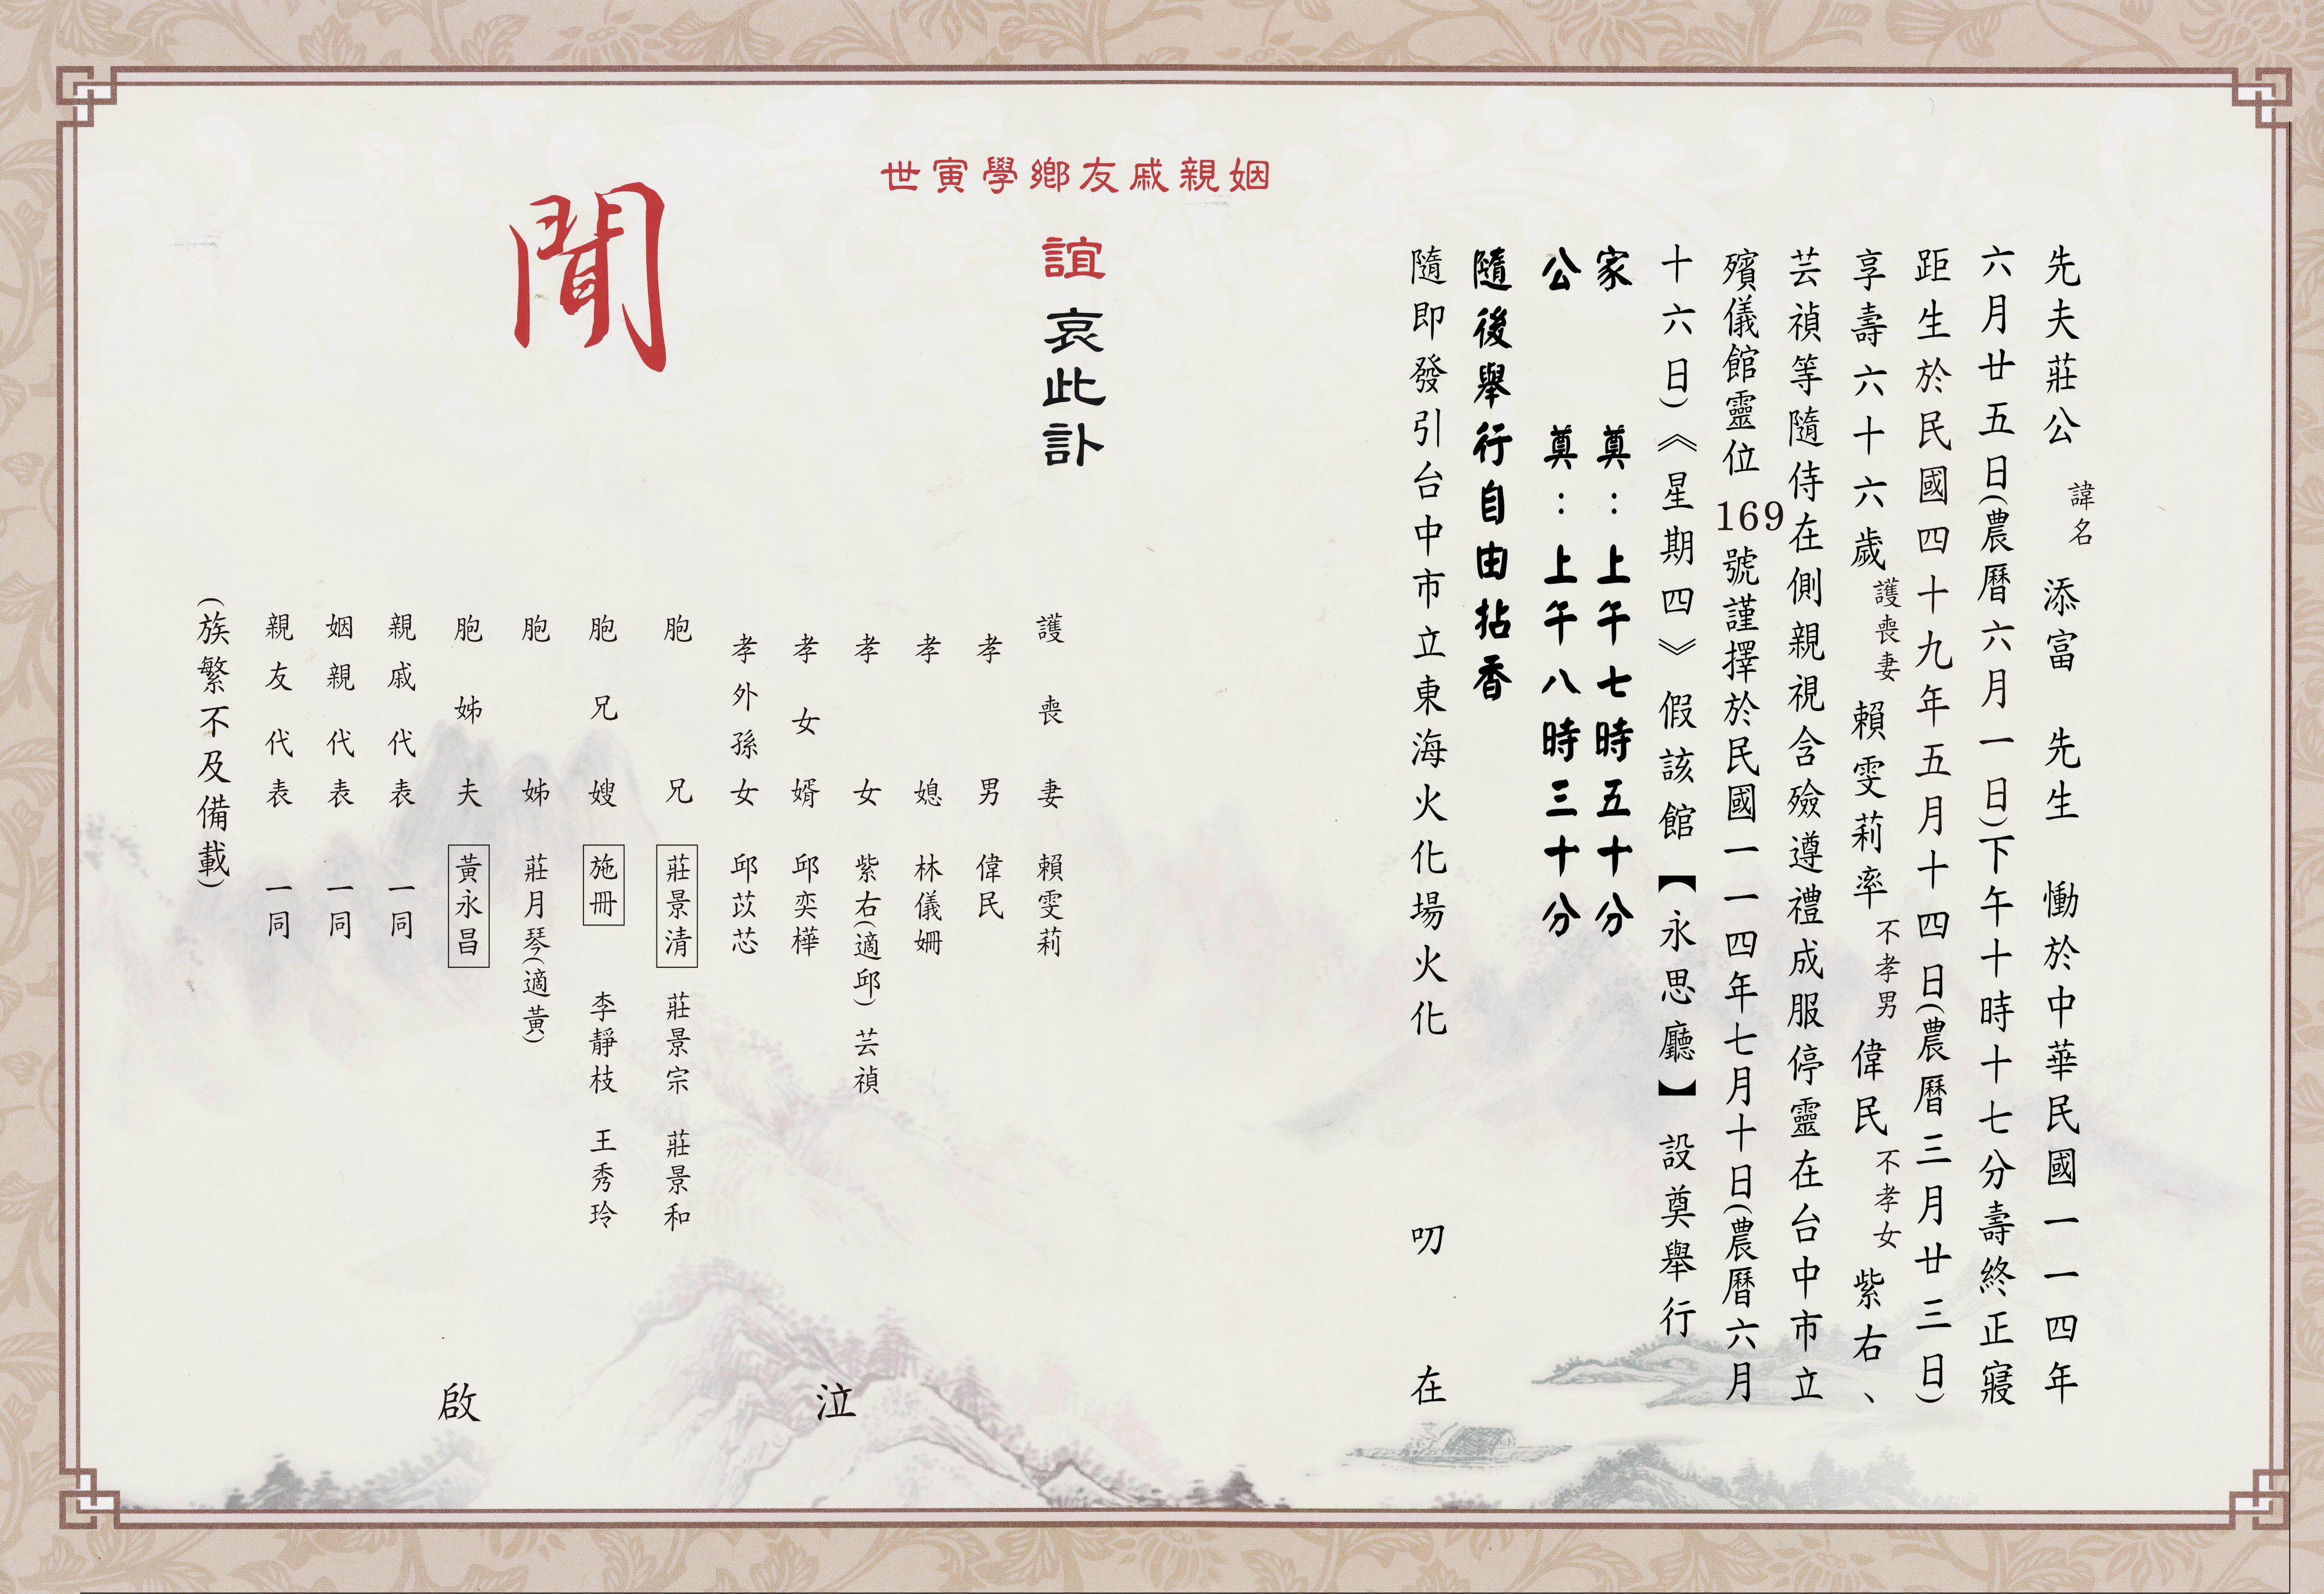 先夫莊公 諱名 添富 先生 慟於中華民國一一四年
六月廿五日(農曆六月一日)下午十時十七分壽終正寢
距生於民國四十九年五月十四日(農曆三月廿三日)
享壽六十六歲 護喪妻 賴雯莉率 不孝男 偉民 不孝女 紫右、
芸禎等隨侍在側親視含殮遵禮成服停靈在台中市立
殯儀館靈位169號謹擇於民國一一四年七月十日(農曆六月
十六日)《星期四》假該館【永思廳】設奠舉行
家 奠：上午七時五十分
公 奠：上午八時三十分
隨後舉行自由拈香
隨即發引台中市立東海火化場火化 叨 在
姻親戚友鄉學寅世
誼哀此訃
聞
護喪妻 賴雯莉
孝男 偉民
孝媳 林儀姍
孝女 紫右(適邱) 芸禎
孝女婿 邱奕樺
孝外孫女 邱苡芯
胞兄 莊景清 莊景宗 莊景和
胞兄嫂 施冊 李靜枝 王秀玲
胞姊 莊月琴(適黃)
胞姊夫 黃永昌
親戚代表 一同
姻親代表 一同
親友代表 一同
(族繁不及備載)
泣 啟